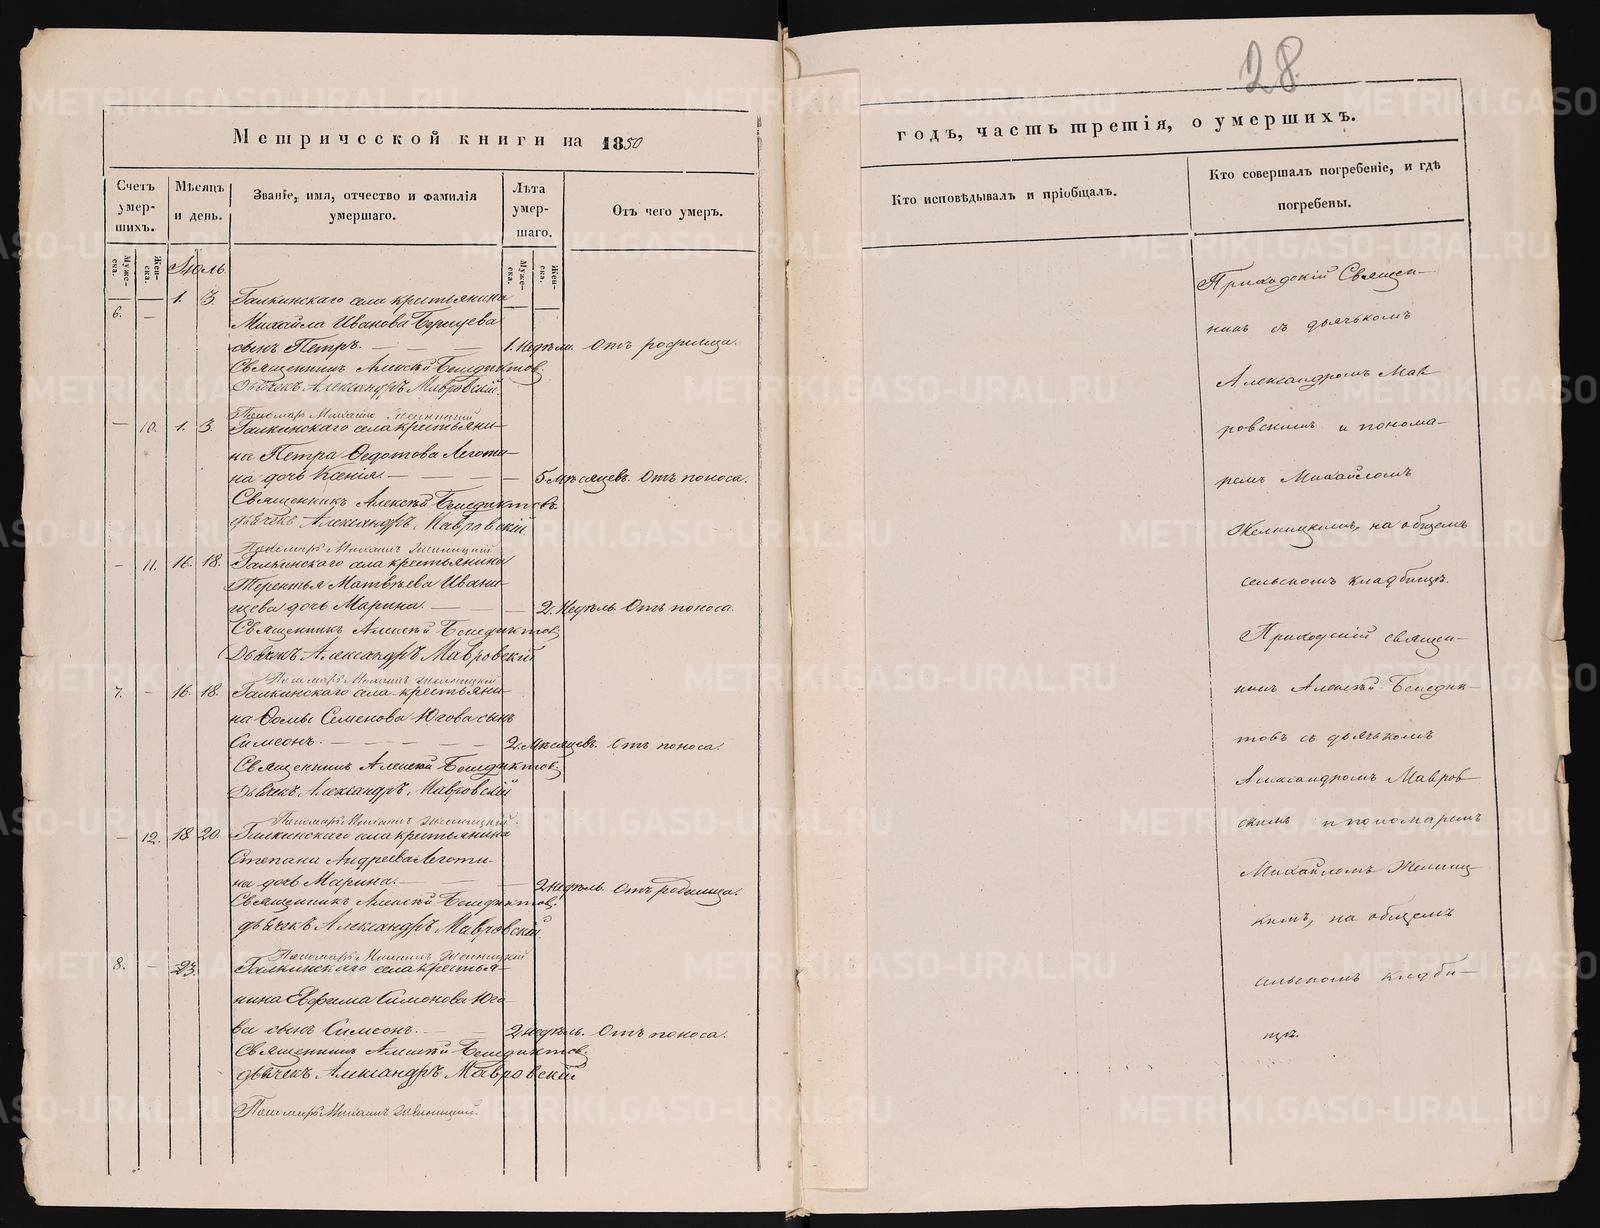 28
Метрической книги на 1850
Счетъ умершихъ.
Мѣсяцъ и день.
Званіе, имя, отчество и фамилія умершаго.
Лѣта умершаго.
Отъ чего умеръ.
Муже-ска.
Жен-ска.
Муже-ска.
Жен-ска.
Июль
6. — 1. 3. Галкинскаго села крестьянина
Михайла Иванова
сынъ Петръ. — 1. Недѣли. Отъ родимца.
Священникъ Алексѣй Бенедиктовъ.
Дьячекъ Александръ Мавровскій.
Пономарь Михаилъ
— 10. 1. 3. Галкинскаго села крестьяни-
на Петра Федотова Леготи-
на дочь Ксенія. — 5 Мѣсяцевъ. Отъ поноса.
Священникъ Алексѣй Бенедиктовъ.
Дьячекъ Александръ Мавровскій.
Пономарь Михаилъ
— 11. 16. 18. Галкинскаго села крестьянина
Терентья Матвѣева Ивани-
щева дочь Марина. — 2. Недѣль. Отъ поноса.
Священникъ Алексѣй Бенедиктовъ
Дьячекъ Александръ Мавровскій
Пономарь Михаилъ
7. — 16. 18. Галкинскаго села крестьяни-
на Фомы Семенова Югова сынъ
Симеонъ. — 2. Мѣсяцевъ. Отъ поноса.
Священникъ Алексѣй Бенедиктовъ
Дьячекъ Александръ Мавровскій
Пономарь Михаилъ
— 12. 18 20. Галкинскаго села крестьянина
Степана Андреева Леготи-
на дочь Марина. — 2 недѣль. Отъ родимца.
Священникъ Алексѣй Бенедиктовъ.
дьячекъ Александръ Мавровскій
Пономарь Михаилъ
8. — 23. Галкинскаго села крестья-
нина Евфима Симонова Юго-
ва сынъ Симеонъ. — 2 недѣль. Отъ поноса.
Священникъ Алексѣй Бенедиктовъ.
дьячекъ Александръ Мавровскій
Пономарь Михаилъ
годъ, часть третія, о умершихъ.
Кто исповѣдывалъ и пріобщалъ.
Кто совершалъ погребеніе, и гдѣ погребены.
Приходскій Священ-
никъ съ дьячькомъ
Александромъ Мав
ровскимъ и понома-
ремъ Михайломъ
на общемъ
сельскомъ кладбищѣ.
Приходскій священ-
никъ Алексѣй Бенедик-
товъ съ дьячькомъ
Александромъ Мавров
скимъ и пономаремъ
Михайломъ
кимъ, на общемъ
сельскомъ кладби-
щѣ.
METRIKI.GASO-URAL.RU